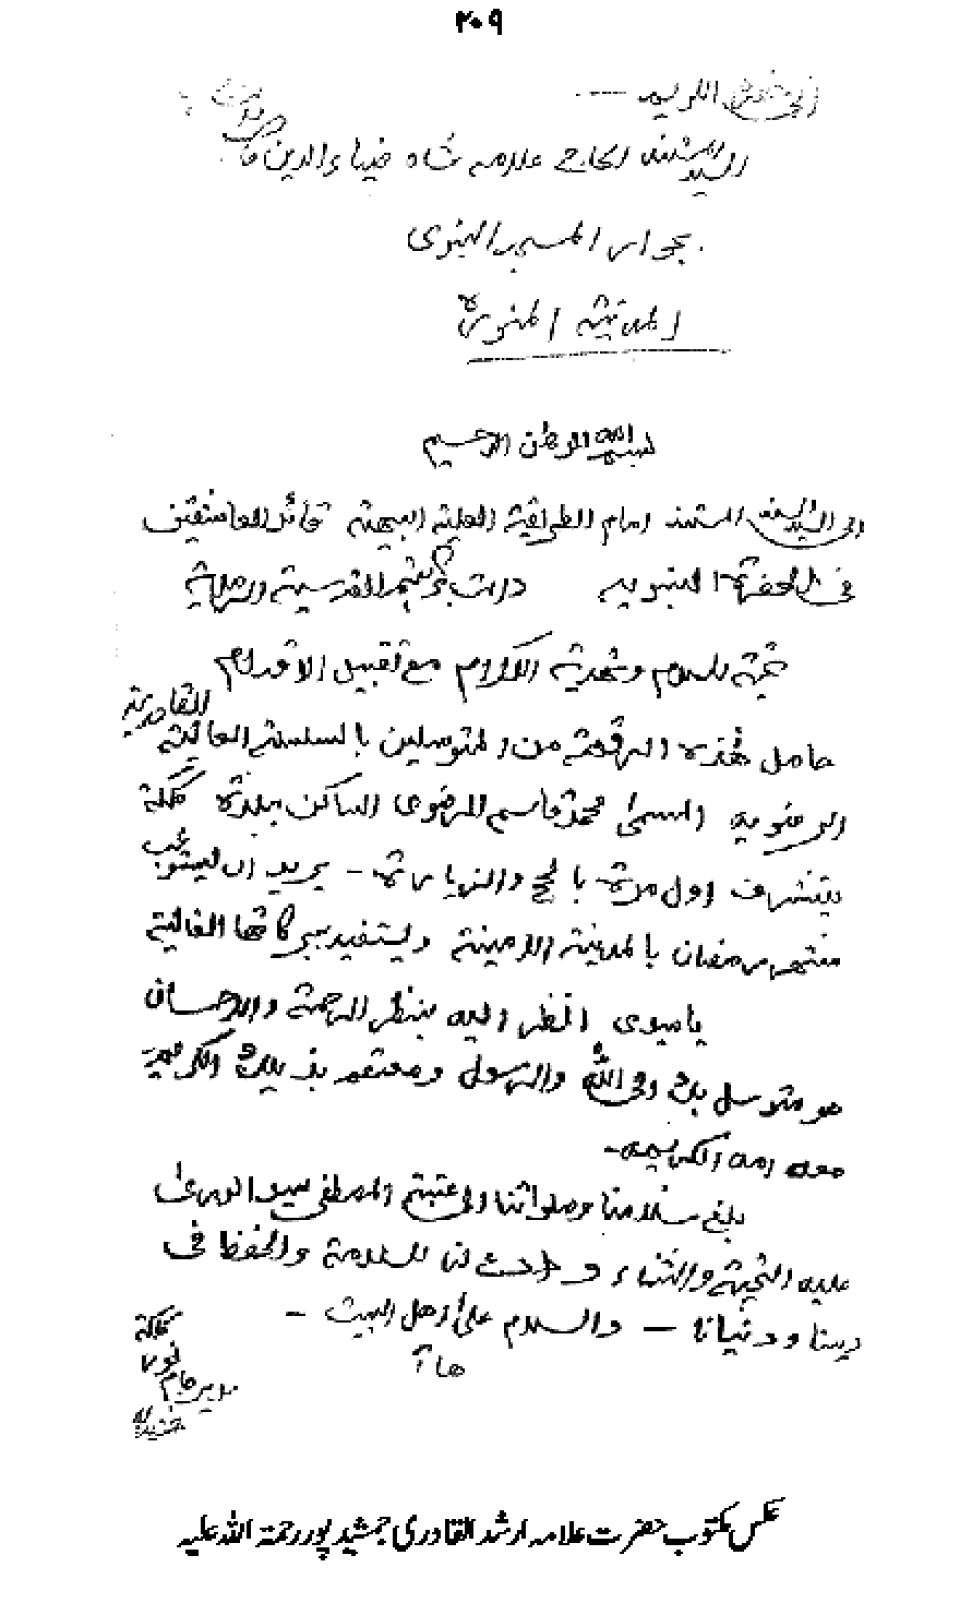 ۲۰۹
الی حضرة الکریم ---
السید السند الحاج علامہ شاہ ضیاء الدین
بجوار المسجد النبوی
المدینة المنورة
بسم اللہ الرحمن الرحیم
الی السید السند المستند امام الطریقة العلیة البهیة قائد العاشقین
فی الحضرة النبویه دامت القدسیة
تحیة السلام وهدیة الاکرام مع تقبیل الاقدام
حامل هذه الرقعة من المتوسلین بالسلسلة العالیة القادریة
الرضویه المسمیٰ محمد قاسم الرضوی الساکن ببلدة کلکتة
یتشرف اول مرة بالحج والزیارة - یرید ان
شهر رمضان بالمدینة الامینة ویستفید ببرکاتها الغالیة
یا سیدی انظر الیه بنظر الرحمة والاحسان
هو متوسل بک الی اللہ والرسول ومعتصم بذیلک الکریم
معه امه الکریمه -
بلغ سلامنا وصلواتنا الی عتبة المصطفی سید الوریٰ
علیه التحیة والثناء و ادع لنا للسلامة والحفظ فی
دیننا ودنیانا — والسلام علیٰ اهل البیت -
عکس مکتوب حضرت علامہ ارشد القادری جمشید پور رحمۃ اللہ علیہ